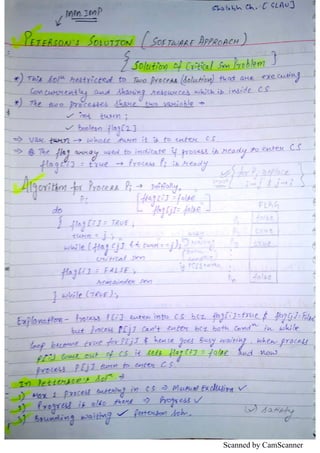 MAM IMP
Shalabh Ch. [SLAU]
PETERSON'S SOLUTION (SOFTWARE APPROACH)
{ Solution of Critical Sxn Problem }
*) This Solⁿ restricted to Two Process (Solution) that are executing
Concurrently and sharing resources which is inside CS
*) The two processes share two variable →
✓ int turn;
✓ boolean flag[2]
⇒ Var turn → whose turn it is to enter CS
⇒ The flag array used to indicate if process is ready to enter CS
flag[i] = true → Process Pi is ready
Algorithm for Process Pi → initially,
for Pj replace
i→j & j→i
Pi
flag[i] = false
flag[j] = false
FLAG
do
{ flag[i] = TRUE;
false
turn = j;
true
while (flag[j] && turn==j);
critical sxn
flag[i] = FALSE;
remainder sxn
false
} while (TRUE);
Explanation - Process P[i] enter into CS bcz flag[i]=true & flag[j]=False
but Process P[j] can't enter bcz both condⁿ in while
loop become true for P[j] & hence goes busy waiting. when process
P[i] come out of CS it sets flag[i] = false and now
process P[j] turn to enter CS
In Petterson's Solⁿ →
1) Max 1 process entering in CS ⇒ Mutual Exclusion ✓
2) Progress is also there ⇒ Progress ✓
3) Bounding waiting ✓ Petterson Soln.
Satisfy
Scanned by CamScanner